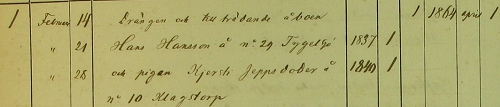 1 Februar 14 Drängen och tilträdande åboen 1 1864 april 1
" 21 Hans Hansson å nº 29 Tygelsjö 1837 1
" 28 och pigan Kjersti Jeppsdoter å 1840 1
nº 10 Klagstorp